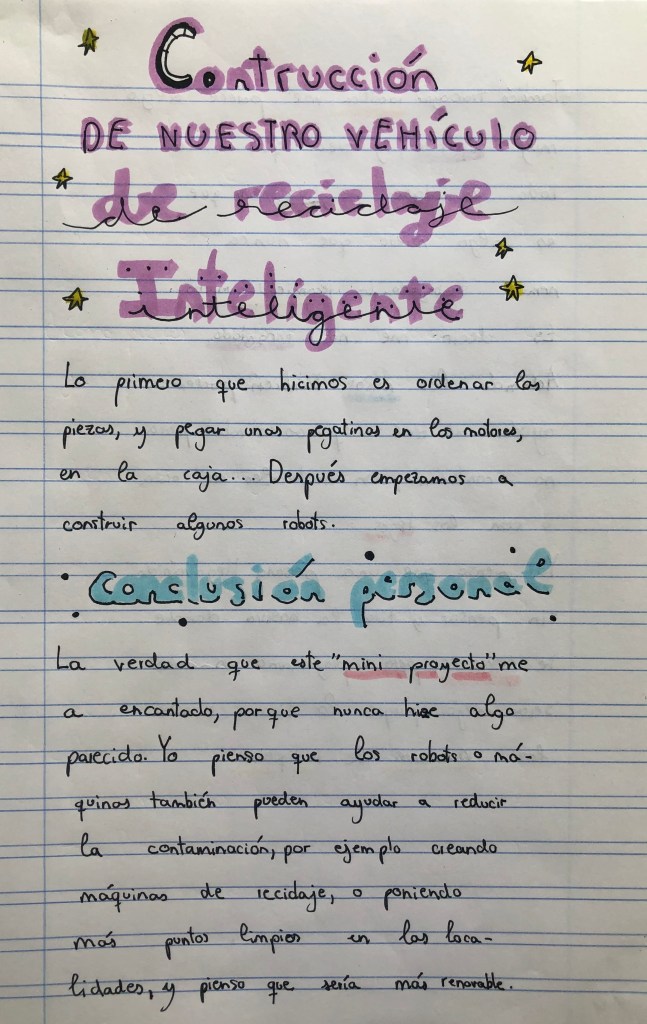 Contrucción
DE NUESTRO VEHÍCULO
de reciclaje
Inteligente
Lo primero que hicimos es ordenar las
piezas, y pegar unas pegatinas en los motores,
en la caja... Después empezamos a
construir algunos robots.
Conclusión personal
La verdad que este "mini proyecto" me
a encantado, porque nunca hice algo
parecido. Yo pienso que los robots o má-
quinas también pueden ayudar a reducir
la contaminación, por ejemplo creando
máquinas de reciclaje, o poniendo
más puntos limpios en las loca-
lidades, y pienso que sería más renovable.